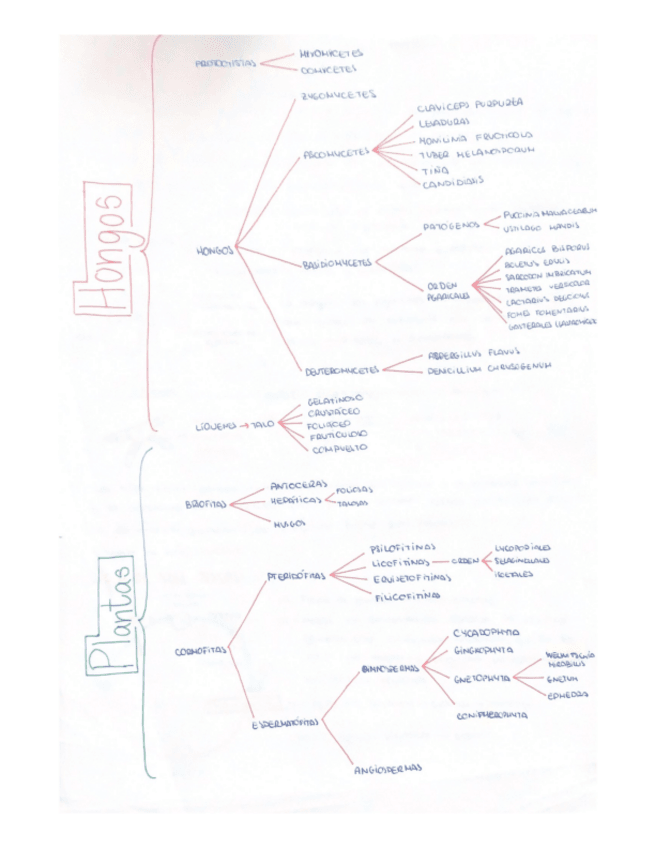 Hongos
PROTOCTISTAS
MIXOMICETES
OOMICETES
HONGOS
ZYGOMYCETES
ASCOMYCETES
CLAVICEPS PURPUREA
LEVADURAS
MONILINIA FRUCTICOLAS
TUBER MELANOSPORUM
TIÑA
CANDIDIASIS
BASIDIOMYCETES
PATÓGENOS
PUCCINIA MALVACEARUM
USTILAGO MAYDIS
ORDEN
AGARICALES
AGARICUS BISPORUS
BOLETUS EDULIS
SARCODON IMBRICATUM
TRAMETES VERSICOLOR
LACTARIUS DELICIOSUS
FOMES FOMENTARIUS
DEUTEROMYCETES
ASPERGILLUS FLAVUS
PENICILLIUM CHRYSOGENUM
LÍQUENES → TALO
GELATINOSO
CRUSTÁCEO
FOLIÁCEO
FRUTICULOSO
COMPUESTO
Plantas
BRIOFITAS
ANTOCERAS
HEPÁTICAS
FOLIOSAS
TALOSAS
MUSGOS
CORMOFITAS
PTERIDÓFITAS
PSILOFITINAS
LICOFITINAS
ORDEN
LYCOPODIALES
SELAGINELLALES
ISOETALES
EQUISETOFITINAS
FILICOFITINAS
ESPERMATÓFITAS
GIMNOSPERMAS
CYCADOPHYTA
GINGKOPHYTA
GNETOPHYTA
WELWITSCHIA
MIRABILIS
GNETUM
EPHEDRA
CONIPHEROPHYTA
ANGIOSPERMAS